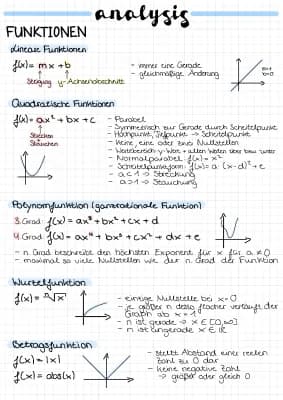 analysis
FUNKTIONEN
Lineare Funktionen
f(x) = mx + b
Steigung y-Achsenabschnitt
- immer eine Gerade
- gleichmäßige Änderung
Quadratische Funktionen
f(x) = ax² + bx + c
Strecken
Stauchen
- Parabel
- Symmetrisch zur Gerade durch Scheitelpunkt
- Hochpunkt, Tiefpunkt → Scheitelpunkt
- Keine, eine oder zwei Nullstellen
- Wertebereich y-Wert + allen Werten über bzw. unter
- Normalparabel f(x) = x²
- Scheitelpunktsform: f(x) = a (x-d)² + e
- a < 1 → Streckung
- a > 1 → Stauchung
Polynomfunktion (ganzrationale Funktion)
3. Grad f(x) = ax³ + bx² + cx + d
4. Grad f(x) = ax⁴ + bx³ + cx² + dx + e
- n. Grad beschreibt den höchsten Exponent für x für a ≠ 0
- maximal so viele Nullstellen wie der n. Grad der Funktion
Wurzelfunktion
f(x) = ⁿ√x
- einzige Nullstelle bei x = 0
- je größer n desto flacher verläuft der
Graph ab x = 1
- n ist gerade → x ∈ [0, ∞[
- n ist ungerade → x ∈ ℝ
Betragsfunktion
f(x) = |x|
f(x) = abs(x)
- stellt Abstand einer reellen
Zahl zu 0 dar
- keine negative Zahl
→ größer oder gleich 0